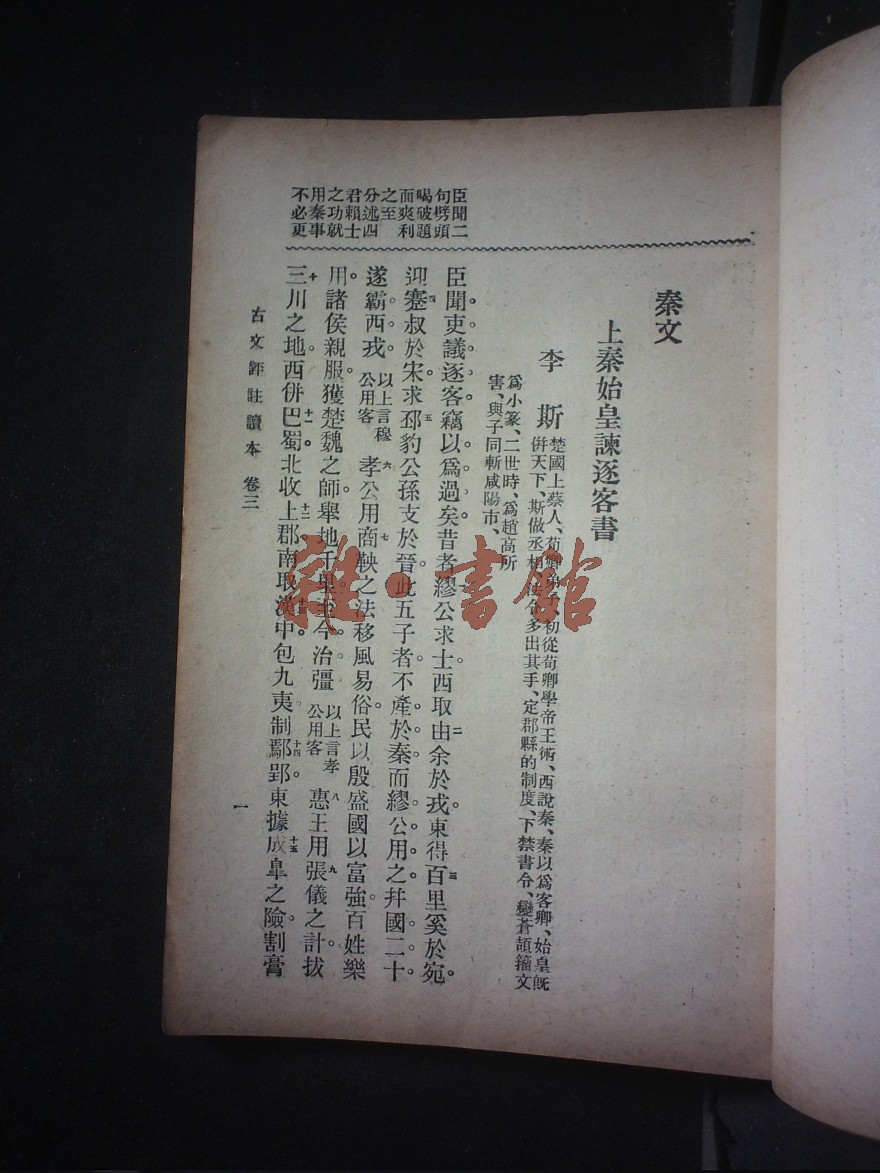 秦文
上秦始皇諫逐客書
李斯
楚國上蔡人、荀卿弟子、初從荀卿學帝王術、西說秦、秦以爲客卿、始皇旣
倂天下、斯做丞相、法令多出其手、定郡縣的制度、下禁書令、變蒼頡籀文
爲小篆、二世時、爲趙高所
害、與子同斬咸陽市、
臣聞二
句劈頭
喝破題
面爽利
之至
分述四
君賴士
之功就
用秦事
不必更
臣聞吏議逐客竊以爲過矣昔者繆公求士西取由余於戎東得百里奚於宛
迎蹇叔於宋求邳豹公孫支於晉此五子者不產於秦而繆公用之幷國二十
遂霸西戎以上言穆公用客孝公用商鞅之法移風易俗民以殷盛國以富強百姓樂
用諸侯親服獲楚魏之師舉地千里至今治彊以上言孝公用客惠王用張儀之計拔
三川之地西併巴蜀北收上郡南取漢中包九夷制鄢郢東據成皐之險割膏
古文評註讀本 卷三
一
雜·書館